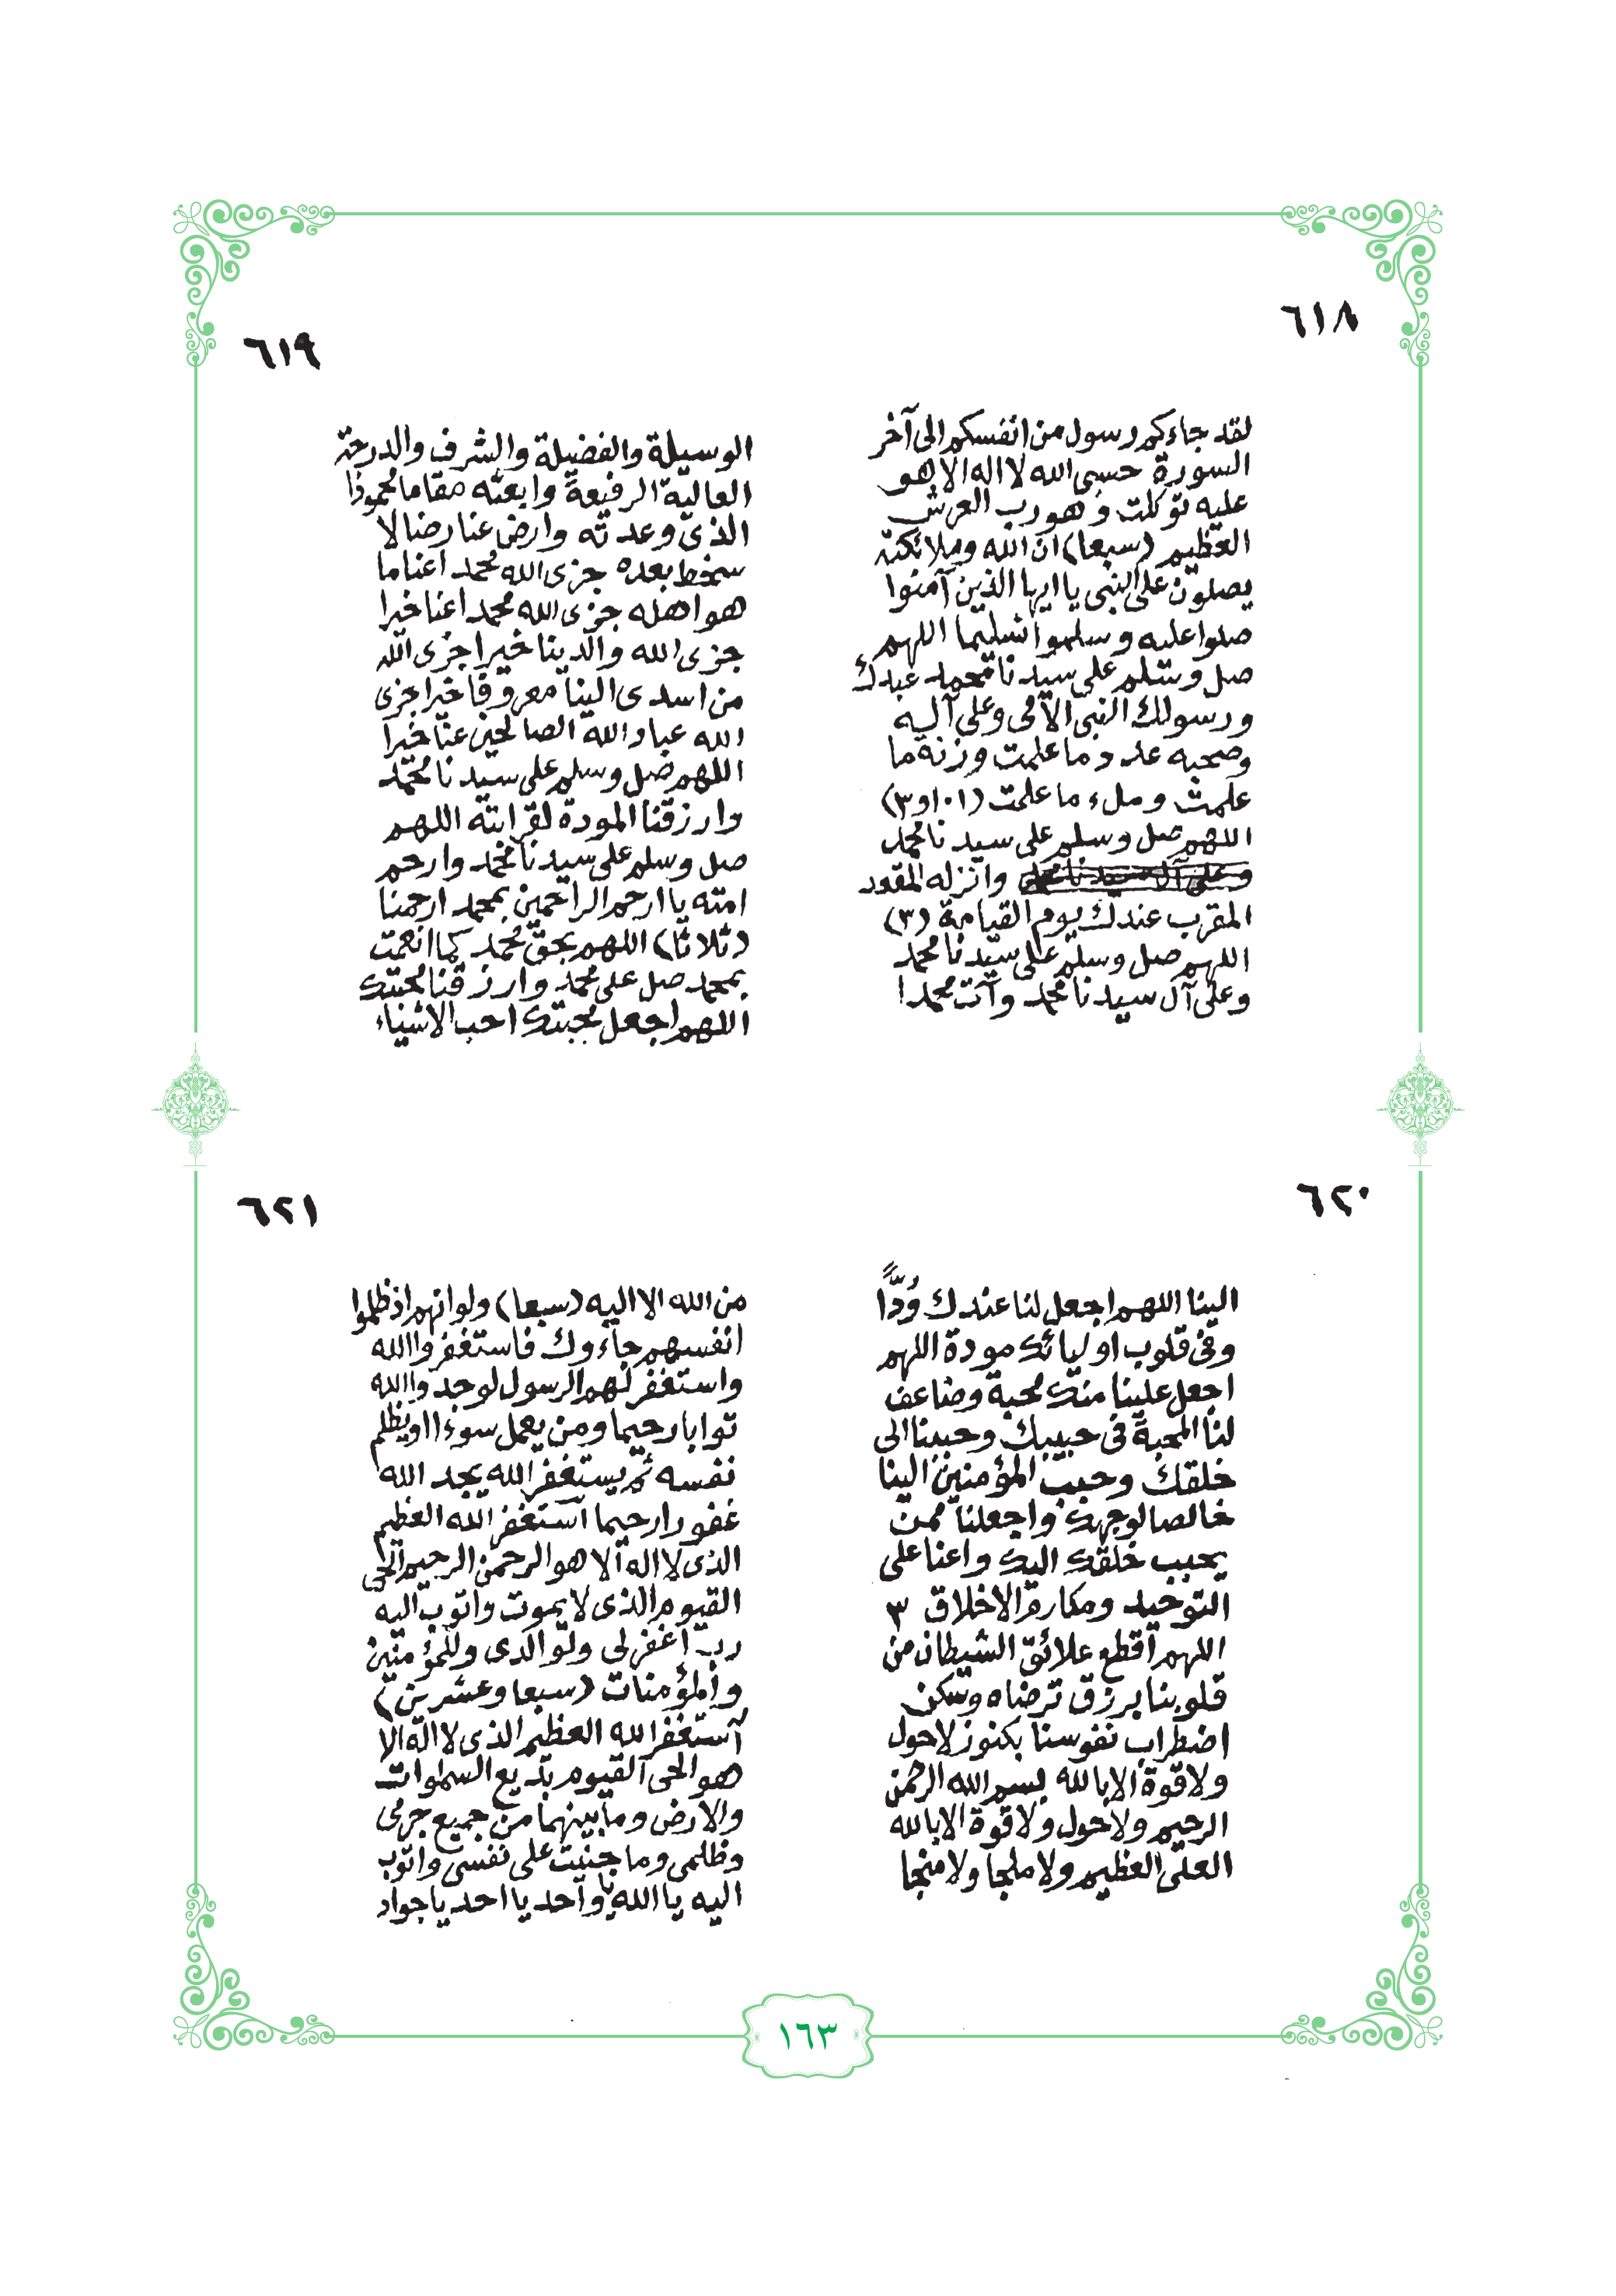 ٦١٨
لقد جاءكم رسول من انفسكم الى آخر
السورة حسبى الله لا اله الا هو
عليه توكلت وهو رب العرش
العظيم (سبعا) ان الله وملائكته
يصلون على النبى يا ايها الذين آمنوا
صلوا عليه وسلموا تسليما اللهم
صل وسلم على سيدنا محمد عبدك
ورسولك النبى الأمى وعلى آليه
وصحبه عدد ما علمت وزنة ما
علمت وملء ما علمت (١٠١ و٣)
اللهم صل وسلم على سيدنا محمد
وعلى آل سيدنا محمد وانزله المقعد
المقرب عندك يوم القيامة (٣)
اللهم صل وسلم على سيدنا محمد
وعلى آل سيدنا محمد وآت محمدا
٦١٩
الوسيلة والفضيلة والشرف والدرجة
العالية الرفيعة وابعثه مقاما محمودا
الذى وعدته وارض عنا رضا لا
سخط بعده جزى الله محمد اعنا ما
هو اهله جزى الله محمد اعنا خيرا
جزى الله والدينا خيرا جزى الله
من اسدى الينا معروفا خيرا جزى
الله عباد الله الصالحين عنا خيرا
اللهم صل وسلم على سيدنا محمد
وارزقنا المودة لقرابته اللهم
صل وسلم على سيدنا محمد وارحم
امته يا ارحم الراحمين بمحمد ارحمنا
(ثلاثا) اللهم بحق محمد كما انعمت
بمحمد صل على محمد وارزقنا محبتك
اللهم اجعل محبتك احب الاشياء
٦٢٠
الينا اللهم اجعل لنا عندك وُدًّا
وفى قلوب اوليائك مودة اللهم
اجعل علينا منك محبة وضاعف
لنا المحبة فى حبيبك وحببنا الى
خلقك وحبب المؤمنين الينا
خالصا لوجهك واجعلنا ممن
يحبب خلقك اليك واعنا على
التوحيد ومكارم الاخلاق ٣
اللهم اقطع علائق الشيطان من
قلوبنا برزق ترضاه وسكن
اضطراب نفوسنا بكنوز لا حول
ولا قوة الا بالله بسم الله الرحمن
الرحيم ولا حول ولا قوة الا بالله
العلى العظيم ولا ملجأ ولا منجا
٦٢١
من الله الا اليه (سبعا) ولو انهم اذ ظلموا
انفسهم جاءوك فاستغفروا الله
واستغفر لهم الرسول لوجدوا الله
توابا رحيما ومن يعمل سوءا او يظلم
نفسه ثم يستغفر الله يجد الله
غفورا رحيما استغفر الله العظيم
الذى لا اله الا هو الرحمن الرحيم الحى
القيوم الذى لا يموت واتوب اليه
رب اغفر لى ولوالدى وللمؤمنين
والمؤمنات (سبعا وعشرين)
استغفر الله العظيم الذى لا اله الا
هو الحى القيوم بديع السموات
والارض وما بينهما من جميع جرمى
وظلمى وما جنيت على نفسى واتوب
اليه يا الله يا واحد يا احد يا جواد
١٦٣